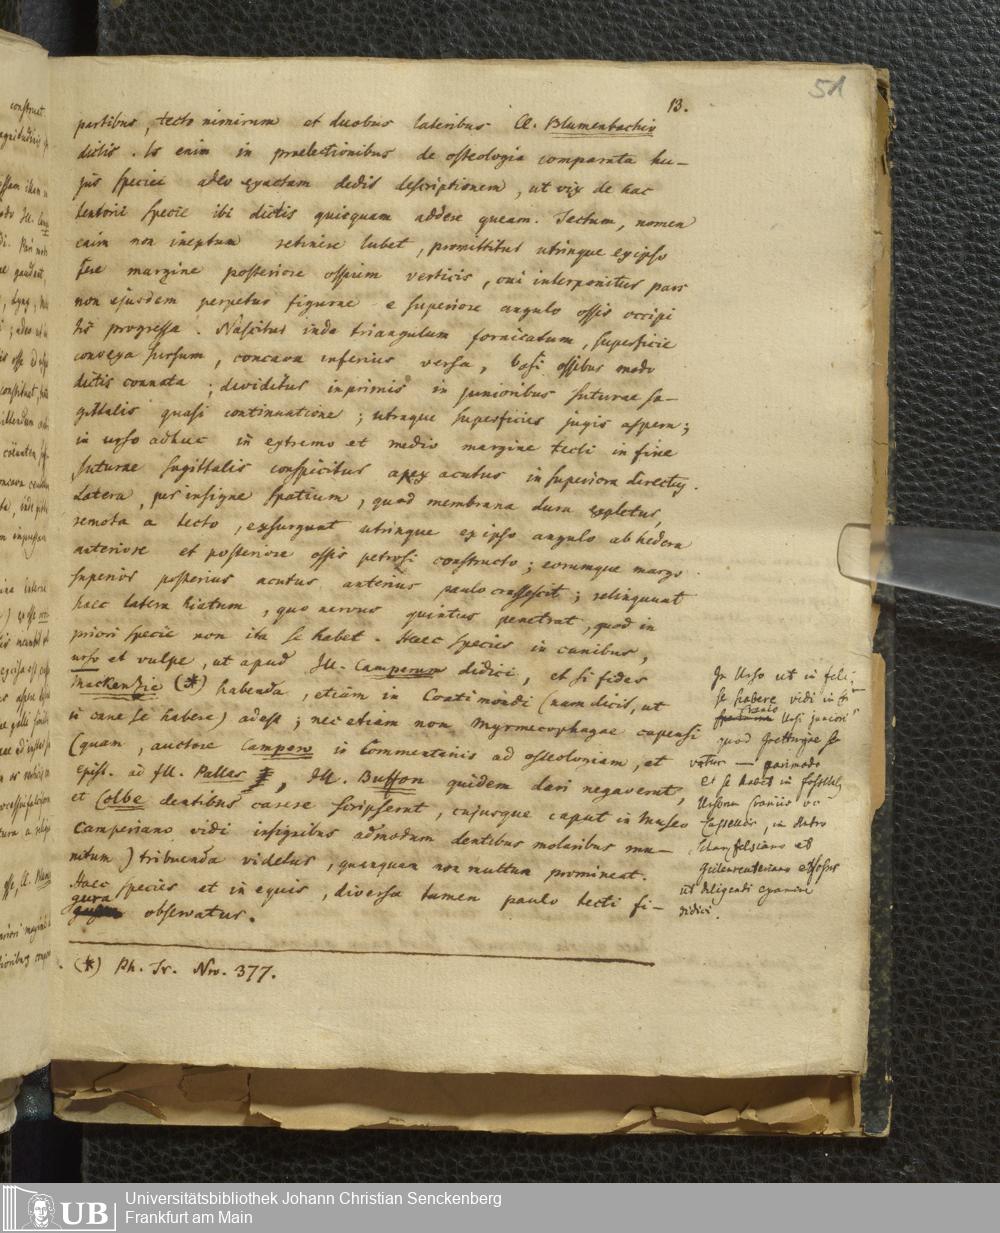 51
13.
partibus, tecto nimirum et duobus lateribus Cl. Blumenbachio
dictis. Is enim in praelectionibus de osteologia comparata hu-
jus speciei adeo exactam dedit descriptionem, ut vix de hac
tentorii specie ibi dictis quicquam addere queam. Tectum, nomen
enim non ineptum retinere lubet, promittitur utrinque ex ipso
fere margine posteriore ossium verticis, cui interponitur pars
non ejusdem perpetuo figurae e superiore angulo ossis occipi
tis progressa. Nascitur inde triangulum fornicatum, superficie
convexa sursum, concava inferius versa, basi ossibus modo
dictis connata; dividitur inprimis in junioribus suturae sa-
gittalis quasi continuatione; utraque superficies jugis aspera;
in urso adhuc in extremo et medio margine tecti in fine
suturae sagittalis conspicitur apex acutus in superiora directus.
Latera, per insigne spatium, quod membrana dura expletur,
remota a tecto, exsurgunt utrinque ex ipso angulo ab hedera
anteriore et posteriore ossis petrosi constructo; eorumque margo
superior posterius acutus anterius paulo crassescit; relinquunt
haec latera hiatum, quo nervus quintus penetrat, quod in
priori specie non ita se habet. Haec species in canibus,
urso et vulpe, ut apud Ill. Camperum didici, et si fides
Mackenzie (*) habenda, etiam in Coati mondi (nam dicit, ut
in cane se habere) adest; nec etiam non Myrmecophagae capensi
(quam, auctore Campero in Commentariis ad osteologiam, et
epist. ad Ill. Pallas, Ill. Buffon quidem dari negaverat,
et Colbe dentibus carere scripserat, cujusque caput in Museo
Camperiano vidi insignibus admodum dentibus molaribus mu-
nitum) tribuenda videtur, quanquam non multum promineat.
Haec species et in equis, diversa tamen paulo tecti fi-
gura observatur.
(*) Ph. Tr. Nro. 377.
In Urso ut in feli
se habere vidi in
Ursi junioris
quod Goettingae
vatur — pari modo
et se habet in fossili
Ursorum craniis
Casseller, in Antro
Scharzfelsiano et
Gailenreuteriano effossis
ut diligenti examine
didici.
Universitätsbibliothek Johann Christian Senckenberg
Frankfurt am Main
UB